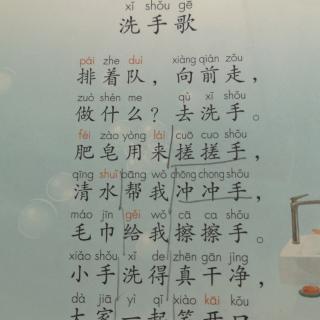 xǐ shǒu gē
洗手歌
pái zhe duì xiàng qián zǒu
排着队，向前走，
zuò shén me qù xǐ shǒu
做什么？去洗手。
féi zào yòng lái cuō cuo shǒu
肥皂用来搓搓手，
qīng shuǐ bāng wǒ chōng chong shǒu
清水帮我冲冲手，
máo jīn gěi wǒ cā ca shǒu
毛巾给我擦擦手。
xiǎo shǒu xǐ de zhēn gān jìng
小手洗得真干净，
dà jiā yì qǐ xiào kāi kǒu
大家一起笑开口